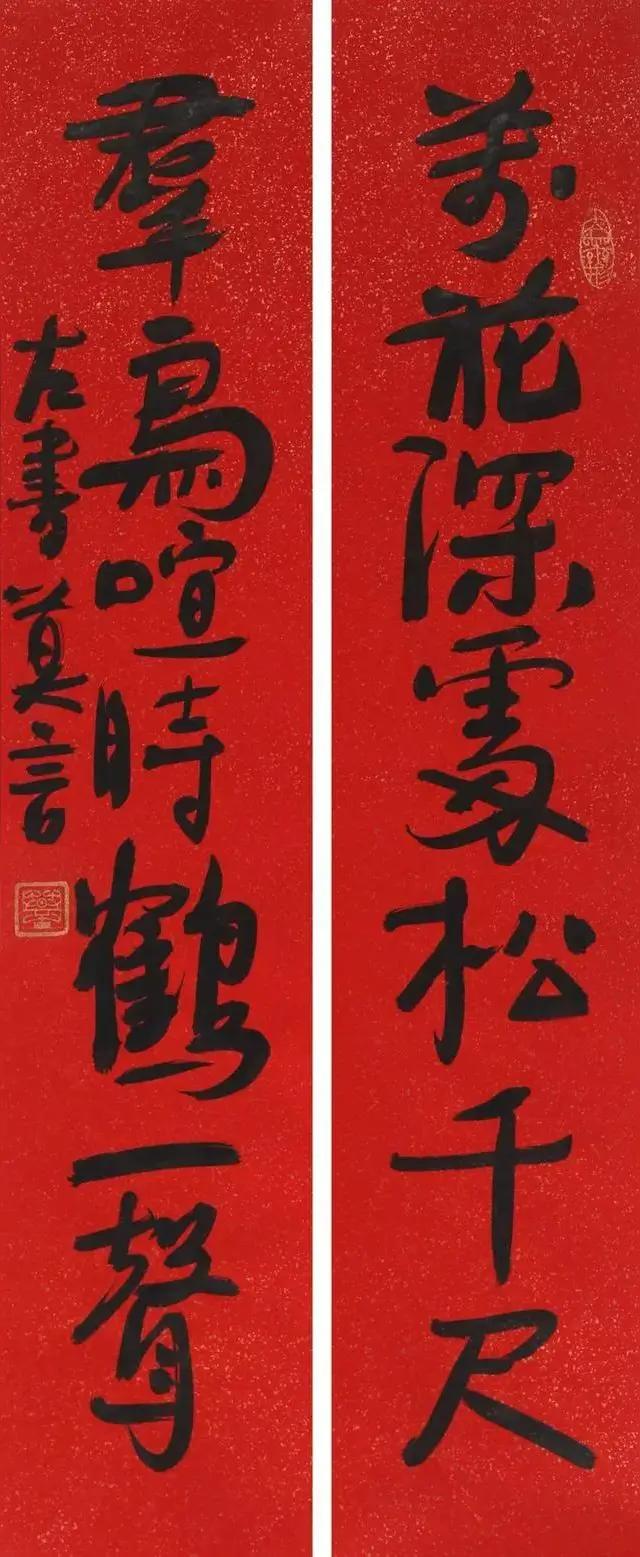 萬花深處松千尺
羣鳥喧時鶴一聲
左書莫言